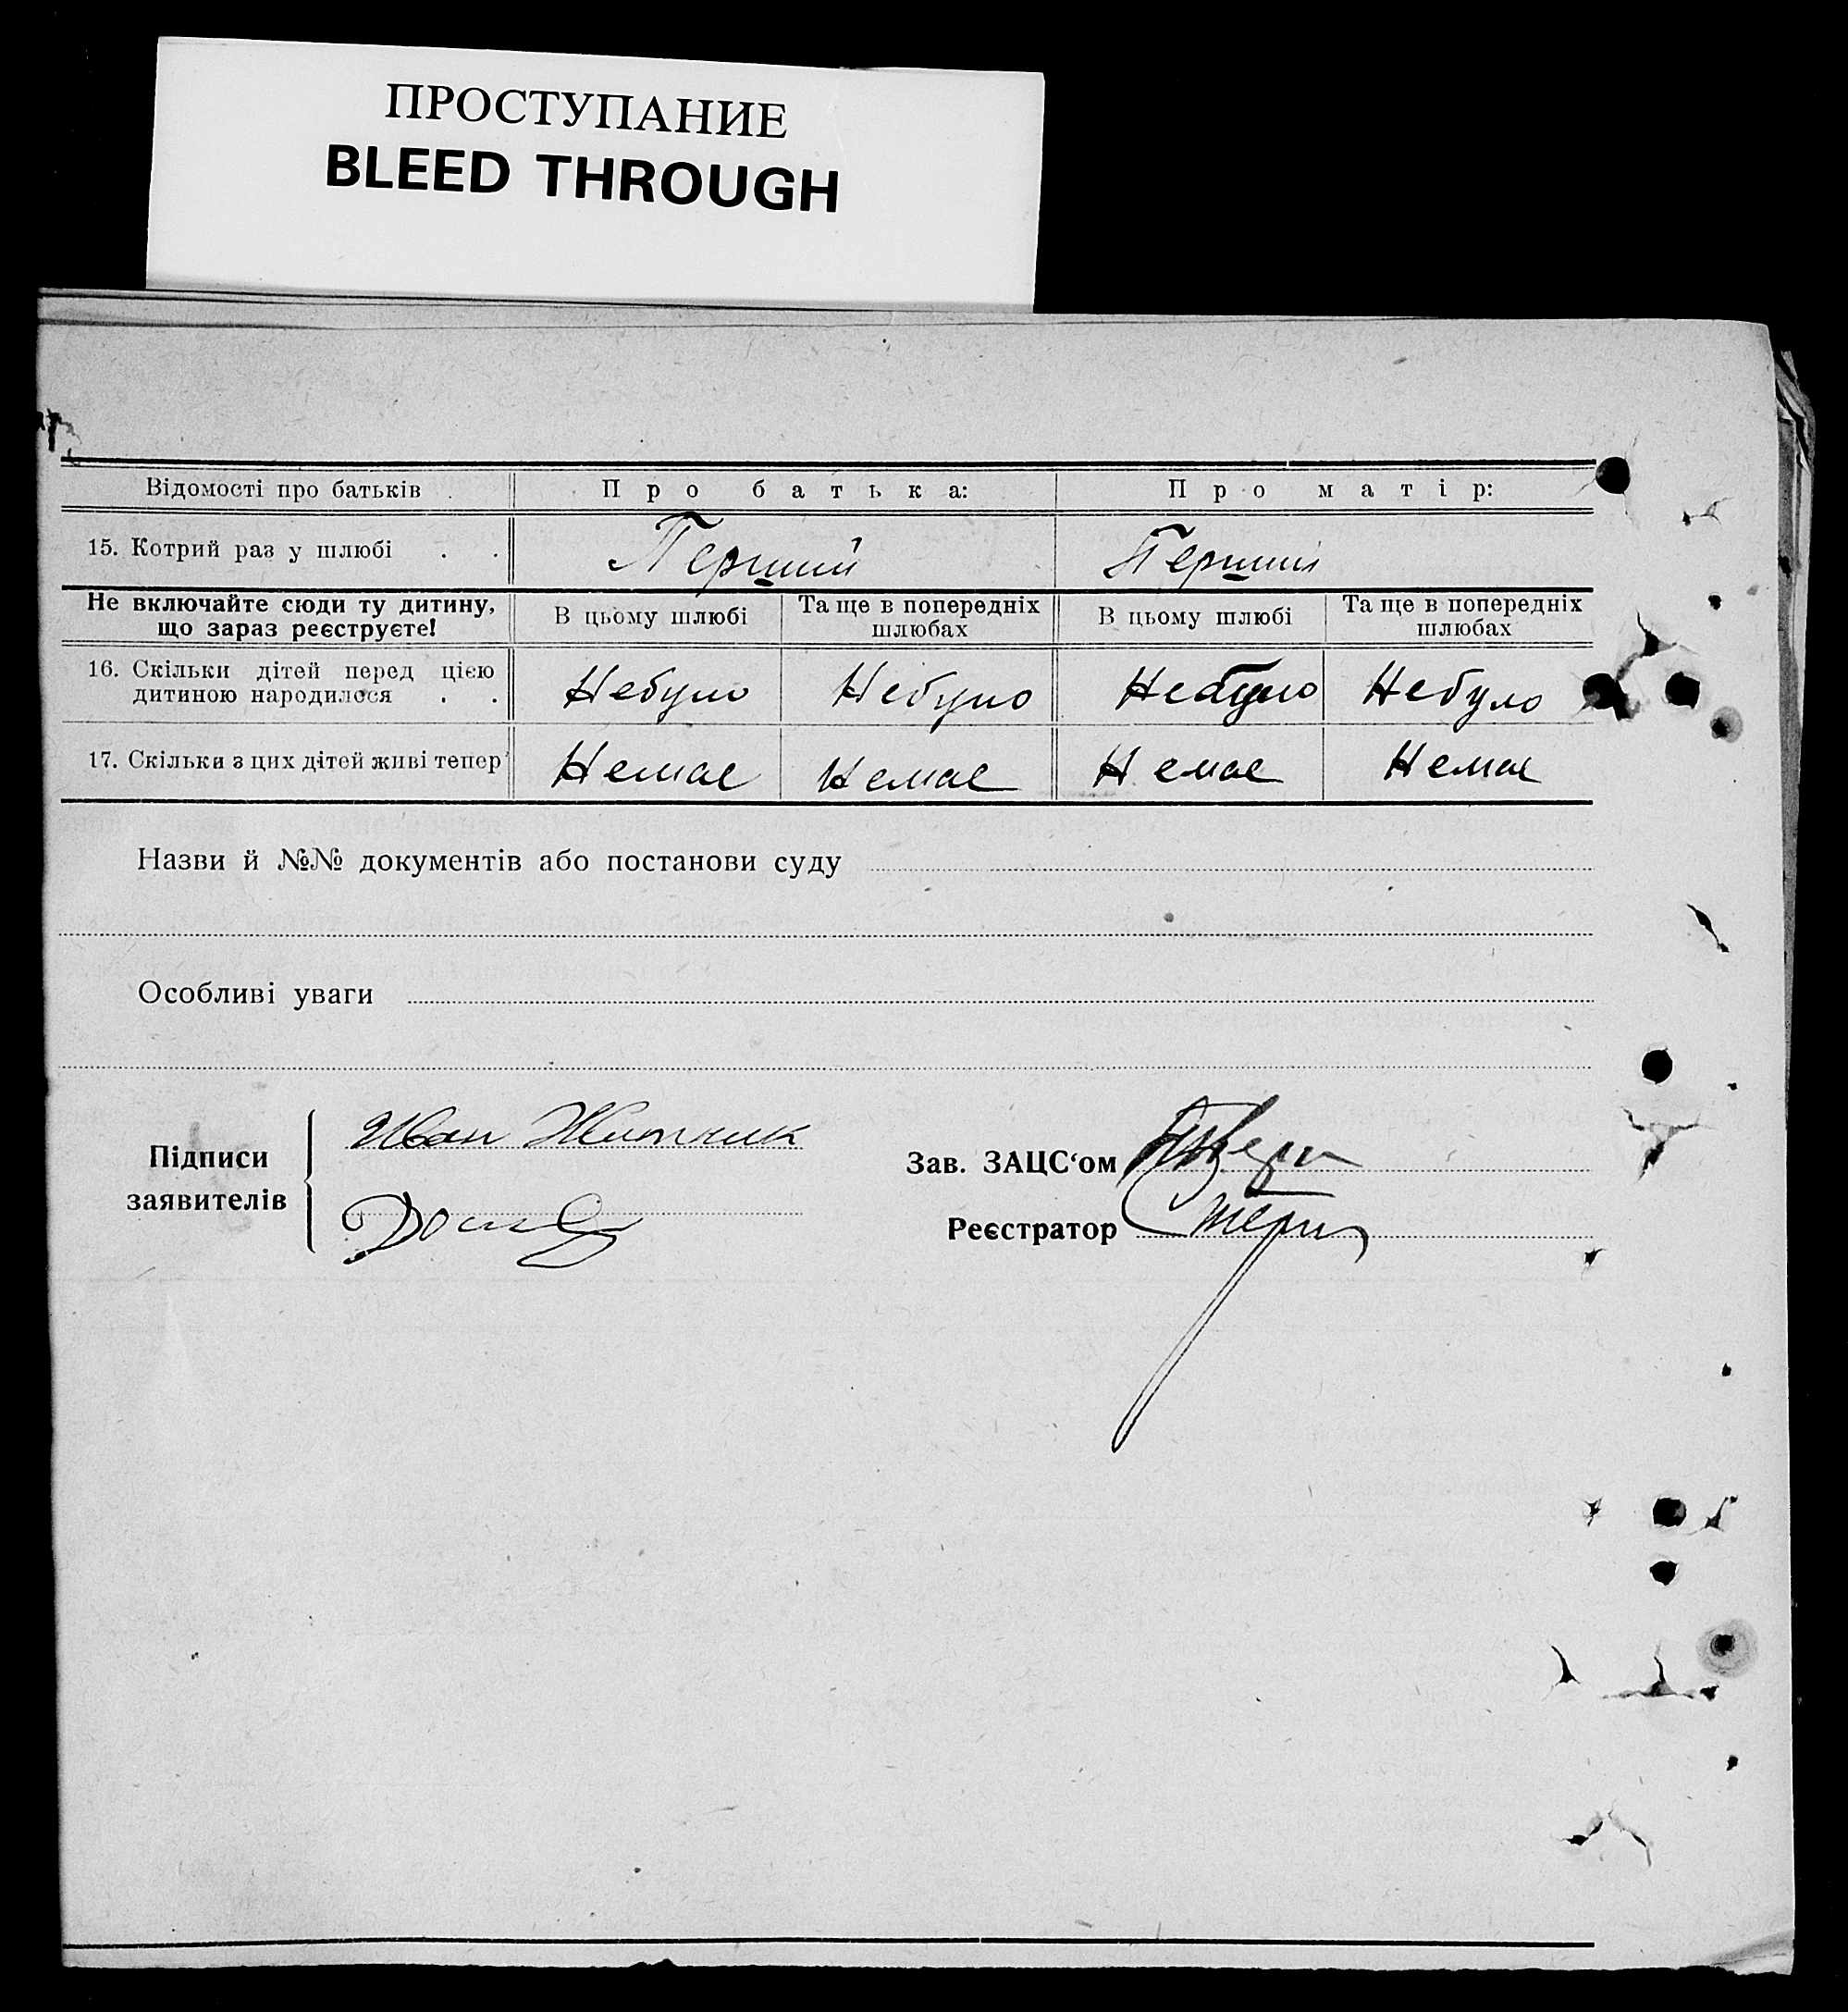 ПРОСТУПАНИЕ
BLEED THROUGH
Відомості про батьків Про батька: Про матір:
15. Котрий раз у шлюбі . . Перший Перший
Не включайте сюди ту дитину, що зараз реєструєте! В цьому шлюбі Та ще в попередніх шлюбах В цьому шлюбі Та ще в попередніх шлюбах
16. Скільки дітей перед цією дитиною народилося . . Небуло Небуло Небуло Небуло
17. Скільки з цих дітей живі тепер Немає Немає Немає Немає
Назви й №№ документів або постанови суду
Особливі уваги
Підписи заявителів Иван
Зав. ЗАЦС‘ом
Реєстратор